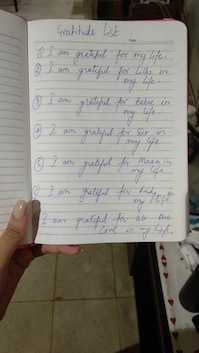 Gratitude List
Date
① I am grateful for my life.
② I am grateful for in
my life.
③ I am grateful for in
my life
④ I am grateful for Sir in
my life
⑤ I am grateful for Maa in
my life.
I am grateful for in
my life.
I am grateful for all the
love in my life.